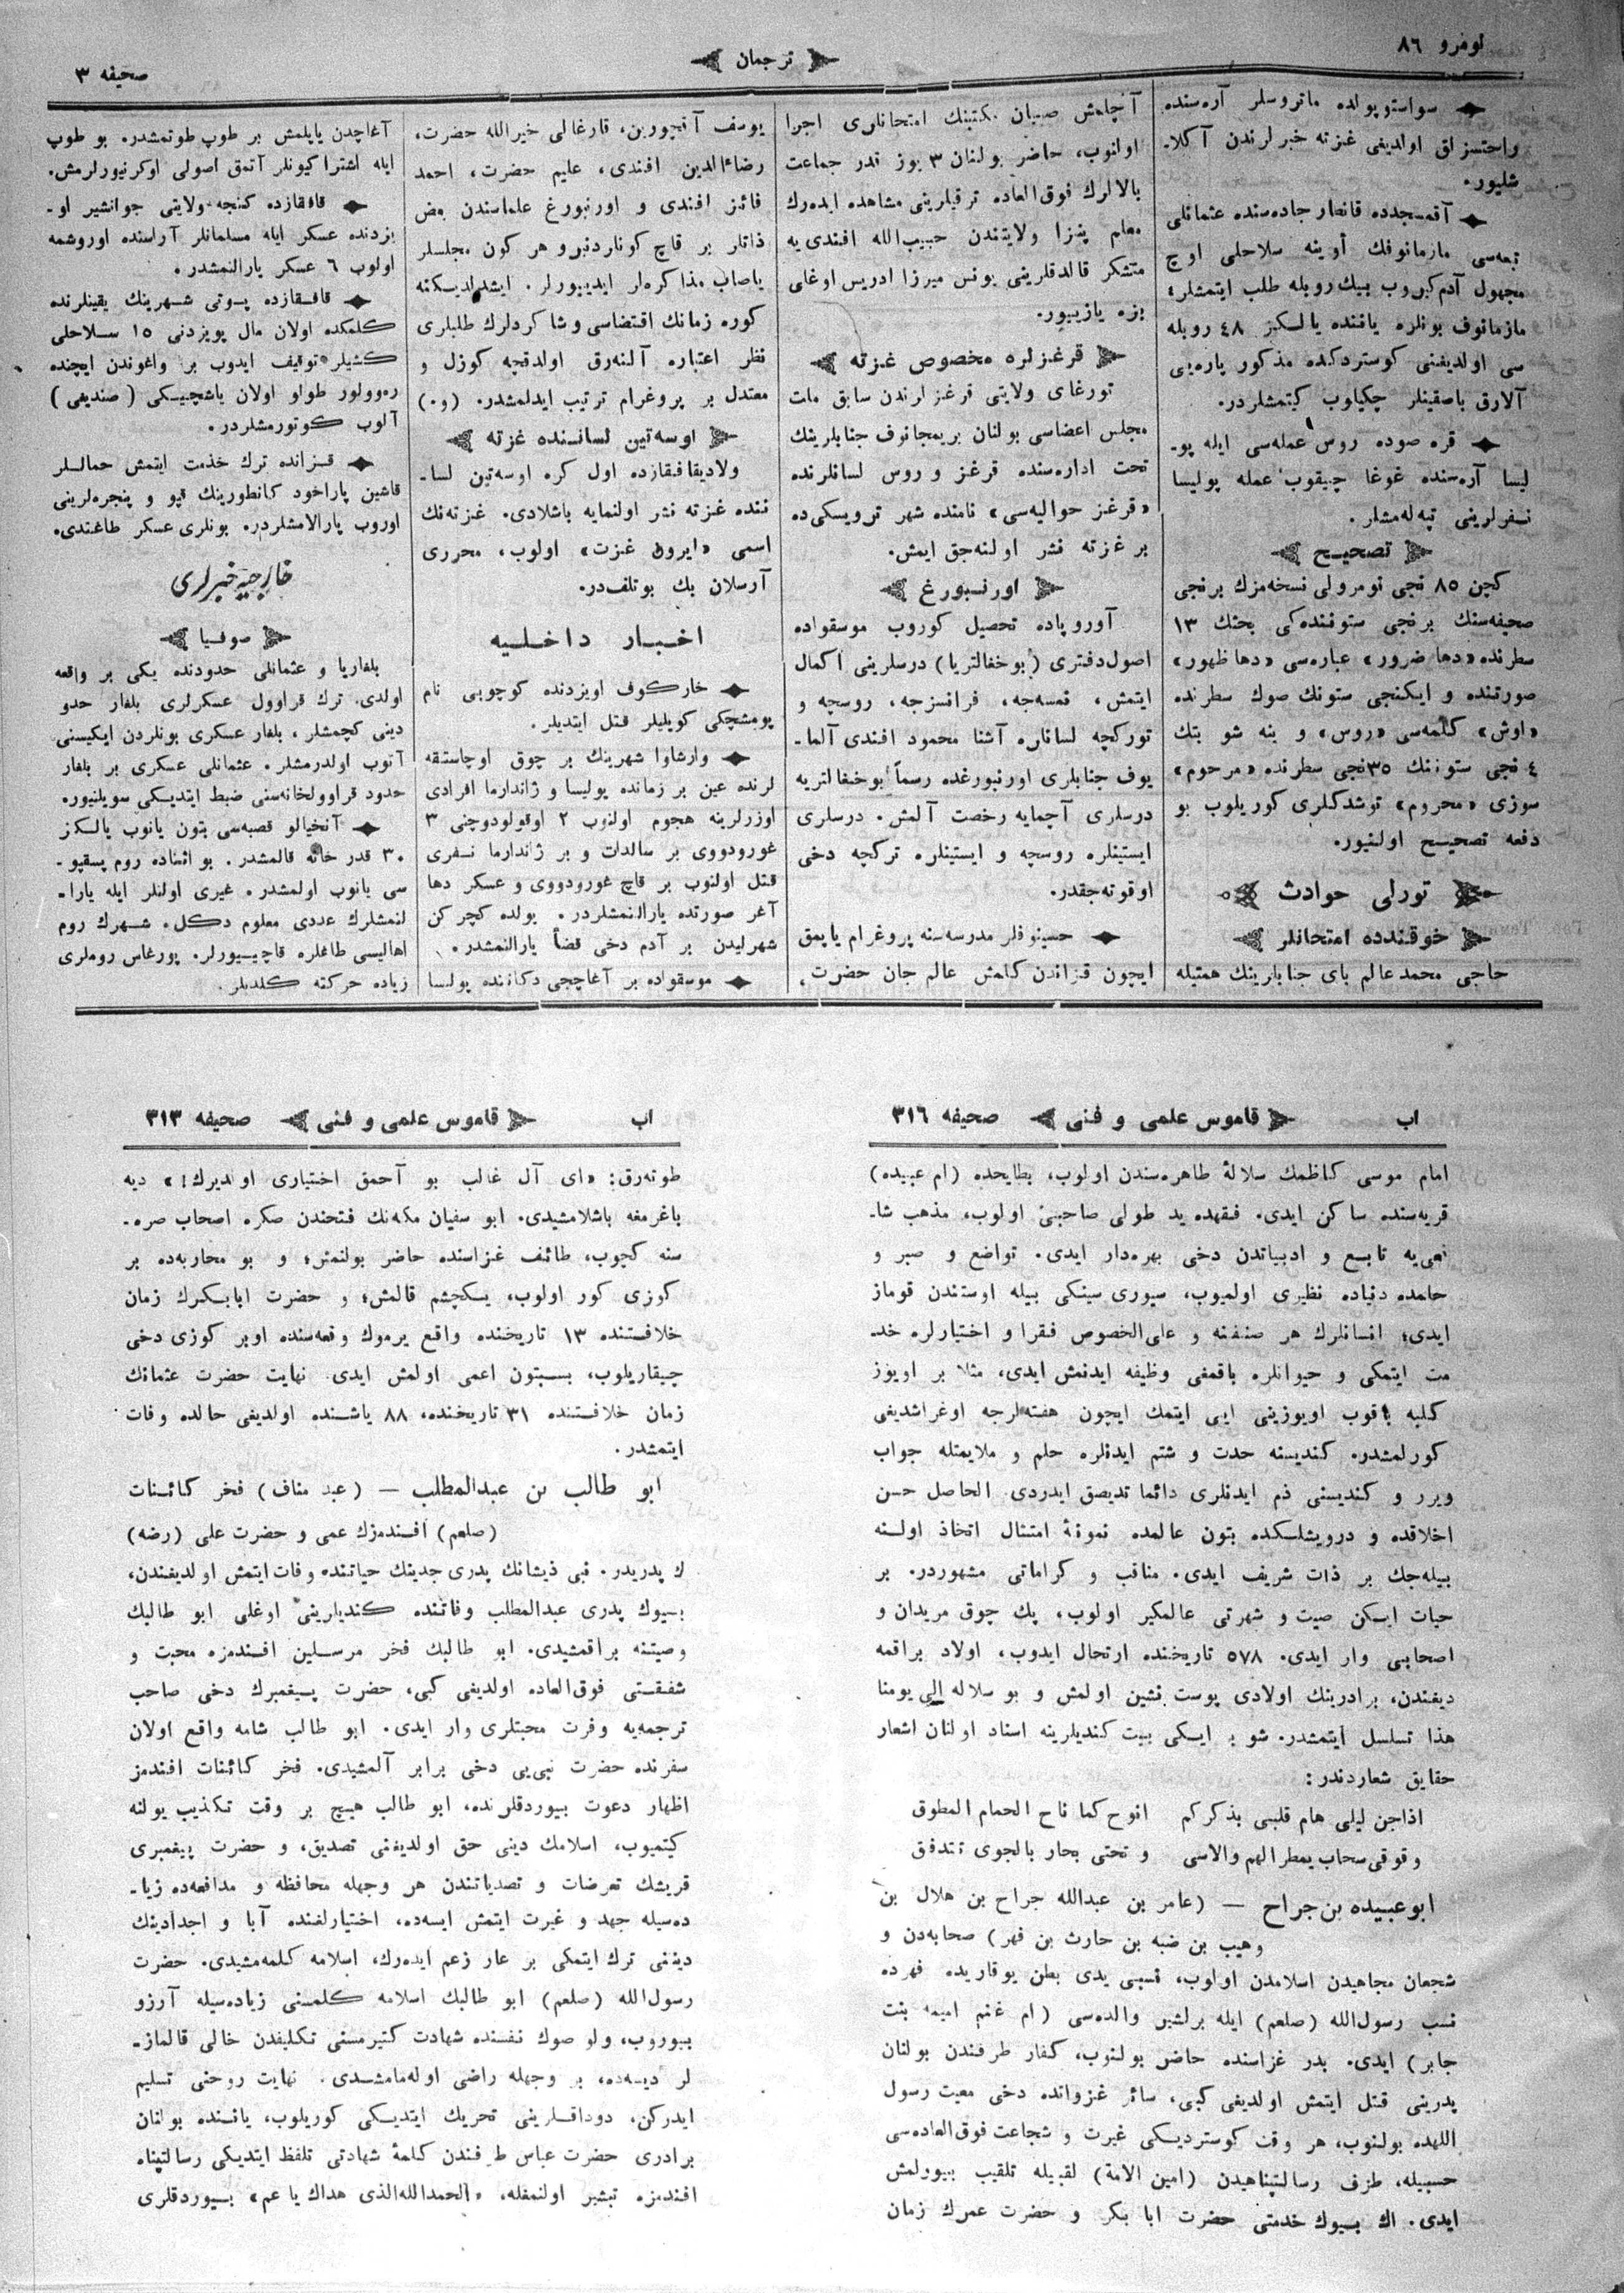 نومرو ٨٦
ترجمان
صحيفه ٣
سواستوپولده ماتروسلر آره‌سنده
راحتسزلق اولديغى غزته خبرلرندن آكلا-
شليور.
آقمسجدده قانطار جاده‌سنده عثمانلى
تبعه‌سى مازمانوفك أوينه سلاحلى اوچ
مجهول آدم كيروب بيك روبله طلب ايتمشلر؛
مازمانوف بونلره ياننده يالكز ٤٨ روبله
سى اولديغنى كوستردكده مذكور پاره‌يى
آلارق باصقينلر چكيلوب كيتمشلردر.
قره صوده روس عمله‌سى ايله پو-
ليسا آره‌سنده غوغا چيقوب عمله پوليسا
نفرلرينى تپه‌له‌مشلر.
تصحيح
كچن ٨٥ نجى نومرولى نسخه‌مزك برنجى
صحيفه‌سنك برنجى ستوننده‌كى بحثك ١٣
سطرنده «دها ضرور» عباره‌سى «دها ظهور»
صورتنده و ايكنجى ستونك صوك سطرنده
«اوش» كلمه‌سى «روس» و ينه شو بتك
٤ نجى ستوننك ٣٥نجى سطرنده «مرحوم»
سوزى «محروم» توشدكلرى كوريلوب بو
دفعه تصحيح اولنيور.
تورلى حوادث
خوقندده امتحانلر
حاجى محمد عالم باى جنابلرينك همتيله
آچلمش صبيان مكتبنك امتحانلرى اجرا
اولنوب، حاضر بولنان ٣ يوز قدر جماعت
بالالرك فوق‌العاده ترقيلرينى مشاهده ايده‌رك
معلم پنزا ولايتندن حبيب‌الله افندى‌يه
متشكر قالدقلرينى يونس ميرزا ادريس اوغلى
بزه يازييور.
قرغزلره مخصوص غزته
تورغاى ولايتى قرغزلرندن سابق ملت
مجلس اعضاسى بولنان بريمجانوف جنابلرينك
تحت اداره‌سنده قرغز و روس لسانلرنده
«قرغز حواليه‌سى» نامنده شهر ترويسكى‌ده
بر غزته نشر اولنه‌جق ايمش.
اورنبورغ
آوروپاده تحصيل كوروب موسقواده
اصول‌دفترى (بوخغالتريا) درسلرينى اكمال
ايتمش، نمسه‌جه، فرانسزجه، روسچه و
توركچه لسانلره آشنا محمود افندى آلما-
يوف جنابلرى اورنبورغده رسماً بوخغالتريه
درسلرى آچمايه رخصت آلمش. درسلرى
ايستينلره روسچه و ايستينلره تركچه دخى
اوقوته‌جقدر.
حسينوفلر مدرسه‌سنه پروغرام ياپمق
ايچون قزاندن كلمش عالم جان حضرت،
يوسف آقچورين، قارغالى خيرالله حضرت،
رضاءالدين افندى، عليم حضرت، احمد
فائز افندى و اورنبورغ علماسندن بعض
ذاتلر بر قاچ كوناردنبرو هر كون مجلسلر
ياصاب مذاكره‌لر ايدييورلر. ايشدلديكنه
كوره زمانك اقتضاسى و شاكردلرك طلبلرى
نظر اعتباره آلنه‌رق اولدقچه كوزل و
معتدل بر پروغرام ترتيب ايدلمشدر. (و.)
اوسه‌تين لسانسنده غزته
ولاديقافقازده اول كره اوسه‌تين لسا-
ننده غزته نشر اولنمايه باشلادى. غزته‌نك
اسمى «ايرون غزت» اولوب، محررى
آرسلان بك بوتلف‌در.
اخبار داخليه
خاركوف اويزدنده كوچوبى نام
پومشچكى كويليلر قتل ايتديلر.
وارشاوا شهرينك بر چوق اوچاستقه
لرنده عين بر زمانده پوليسا و ژاندارما افرادى
اوزرلرينه هجوم اولنوب ٢ اوقولودوچنى ٣
غورودووى بر سالدات و بر ژاندارما نفرى
قتل اولنوب بر قاچ غورودووى و عسكر دها
آغر صورتده يارالنمشلردر. يولده كچركن
شهرليدن بر آدم دخى قضاً يارالنمشدر.
موسقواده بر آغاچجى دكاننده پوليسا
آغاچدن ياپلمش بر طوپ طوتمشدر. بو طوپ
ايله اشتراكيونلر آتمق اصولى اوكرنيورلرمش.
قافقازده كنجه ولايتى جوانشير او-
يزدنده عسكر ايله مسلمانلر آراسنده اوروشمه
اولوب ٦ عسكر يارالنمشدر.
قافقازده پوتى شهرينك يقينلرنده
كلمكده اولان مال پويزدنى ١٥ سلاحلى
كشيلر توقيف ايدوب بر واغوندن ايچنده
ره‌وولور طولو اولان ياشچيكى (صنديغى)
آلوب كوتورمشلردر.
قزانده ترك خدمت ايتمش حماللر
قاشين پاراخود كانطورينك قپو و پنجره‌لرينى
اوروب پارالامشلردر. بونلرى عسكر طاغتدى.
خارجيه خبرلرى
صوفيا
بلغاريا و عثمانلى حدودنده يكى بر واقعه
اولدى. ترك قراوول عسكرلرى بلغار حدو
دينى كچمشلر، بلغار عسكرى بونلردن ايكيسنى
آتوب اولدرمشلر. عثمانلى عسكرى بر بلغار
حدود قراوولخانه‌سنى ضبط ايتديكى سويلنيور.
آنخيالو قصبه‌سى بتون يانوب يالكز
٣٠ قدر خانه قالمشدر. بو اثناده روم پسقپو-
سى يانوب اولمشدر. غيرى اولنلر ايله يارا-
لنمشلرك عددى معلوم دكل. شهرك روم
اهاليسى طاغلره قاچييورلر. پورغاس روملرى
زياده حركته كلديلر.
اب قاموس علمى و فنى صحيفه ٣١٦
امام موسى كاظمك سلالۀ طاهره‌سندن اولوب، بطايحده (ام عبيده)
قريه‌سنده ساكن ايدى. فقهده يد طولى صاحبى اولوب، مذهب شا-
فعى‌يه تابع و ادبياتدن دخى بهره‌دار ايدى. تواضع و صبر و
حلمده دنياده نظيرى اولميوب، سيورى سينكى بيله اوستندن قوماز
ايدى؛ انسانلرك هر صنفنه و على‌الخصوص فقرا و اختيارلره خد-
مت ايتمكى و حيوانلره باقمغى وظيفه ايدنمش ايدى، مثلا بر اويوز
كلبه باقوب اويوزينى ايى ايتمك ايچون هفته‌لرجه اوغراشديغى
كورلمشدر. كنديسنه حدت و شتم ايدنلره حلم و ملايمتله جواب
ويرر و كنديسنى ذم ايدنلرى دائما تديصق ايدردى. الحاصل حسن
اخلاقده و درويشلكده بتون عالمده نمونۀ امتثال اتخاذ اولنه
بيله‌جك بر ذات شريف ايدى. مناقب و كراماتى مشهوردر. بر
حيات ايكن صيت و شهرتى عالمكير اولوب، پك چوق مريدان و
اصحابى وار ايدى. ٥٧٨ تاريخنده ارتحال ايدوب، اولاد براقمه
ديغندن، برادرينك اولادى پوست نشين اولمش و بو سلاله الى يومنا
هذا تسلسل ايتمشدر. شو ايكى بيت كنديلرينه اسناد اولنان اشعار
حقايق شعاردندر:
اذاجن ليلى هام قلبى بذكركم انوح كما ناح الحمام المطوق
و فوقى سحاب يمطر الهم والاسى و تحتى بحار بالجوى تتدفق
ابوعبيده بن جراح — (عامر بن عبدالله جراح بن هلال بن
وهيب بن ضبه بن حارث بن فهر) صحابه‌دن و
شجعان مجاهيدن اسلامدن اولوب، نسبى يدى بطن يوقاريده فهرده
نسب رسول‌الله (صلعم) ايله برلشير والده‌سى (ام غنم اميمه بنت
جابر) ايدى. بدر غزاسنده حاضر بولنوب، كفار طرفندن بولنان
پدرينى قتل ايتمش اولديغى كبى، سائر غزوانده دخى معيت رسول
اللهده بولنوب، هر وقت كوسترديكى غيرت و شجاعت فوق‌العاده‌سى
حسبيله، طرف رسالتپناهيدن (امين الامة) لقبيله تلقيب بيورلمش
ايدى. اك بيوك خدمتى حضرت ابا بكر و حضرت عمرك زمان
اب قاموس علمى و فنى صحيفه ٣١٣
طوته‌رق: «اى آل غالب بو آحمق اختيارى اولديرك!» ديه
باغرمغه باشلامشيدى. ابو سفيان مكه‌نك فتحندن صكره اصحاب صره-
سنه كچوب، طائف غزاسنده حاضر بولنمش؛ و بو محاربه‌ده بر
كوزى كور اولوب، يكچشم قالمش؛ و حضرت ابابكرك زمان
خلافتنده ١٣ تاريخنده واقع يرموك وقعه‌سنده اوبر كوزى دخى
چيقاريلوب، بسبتون اعمى اولمش ايدى. نهايت حضرت عثمانك
زمان خلافتنده ٣١ تاريخنده، ٨٨ ياشنده اولديغى حالده وفات
ايتمشدر.
ابو طالب بن عبدالمطلب — (عبد مناف) فخر كائنات
(صلعم) افندمزك عمى و حضرت على (رضه)
ك پدريدر. نبى ذيشانك پدرى جدينك حياتنده وفات ايتمش اولديغندن،
بيوك پدرى عبدالمطلب وفاتنده كنديلرينى اوغلى ابو طالبك
وصيتنه براقمشيدى. ابو طالبك فخر مرسلين افندمزه محبت و
شفقتى فوق‌العاده اولديغى كبى، حضرت پيغمبرك دخى صاحب
ترجمه‌يه وفرت محبتلرى وار ايدى. ابو طالب شامه واقع اولان
سفرنده حضرت نبى‌يى دخى برابر آلمشيدى. فخر كائنات افندمز
اظهار دعوت بيوردقلرنده، ابو طالب هيچ بر وقت تكذيب يولنه
كيتميوب، اسلامك دينى حق اولديغنى تصديق، و حضرت پيغمبرى
قريشك تعرضات و تصدياتندن هر وجهله محافظه و مدافعه‌ده زيا-
ده‌سيله جهد و غيرت ايتمش ايسه‌ده، اختيارلغنده آبا و اجدادينك
دينى ترك ايتمكى بر عار زعم ايده‌رك، اسلامه كلمه‌مشيدى. حضرت
رسول‌الله (صلعم) ابو طالبك اسلامه كلمسنى زياده‌سيله آرزو
بيوروب، ولو صوك نفسنده شهادت كتيرمسنى تكليفدن خالى قالماز-
لر ديه‌ده، بر وجهله راضى اوله‌مامشدى. نهايت روحنى تسليم
ايدركن، دوداقلرينى تحريك ايتديكى كوريلوب، ياننده بولنان
برادرى حضرت عباس طرفندن كلمۀ شهادتى تلفظ ايتديكى رسالتپناه
افندمزه تبشير اولنمغله، «الحمدالله‌الذى هداك يا عم» بيوردقلرى